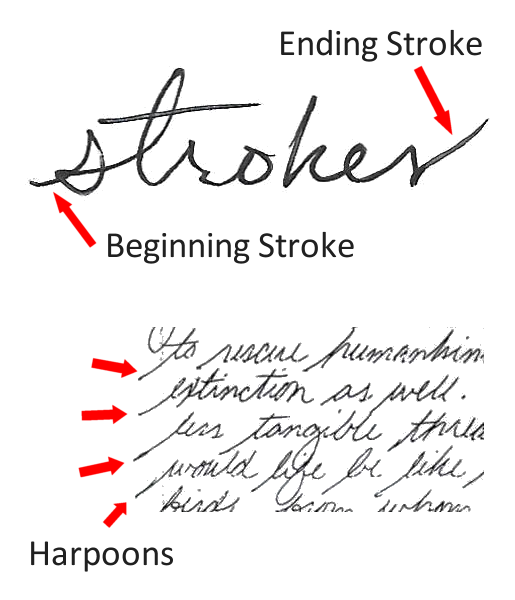 Ending Stroke
strokes
Beginning Stroke
to rescue humankin
extinction as well.
less tangible threa
would life be like
birds from whom
Harpoons